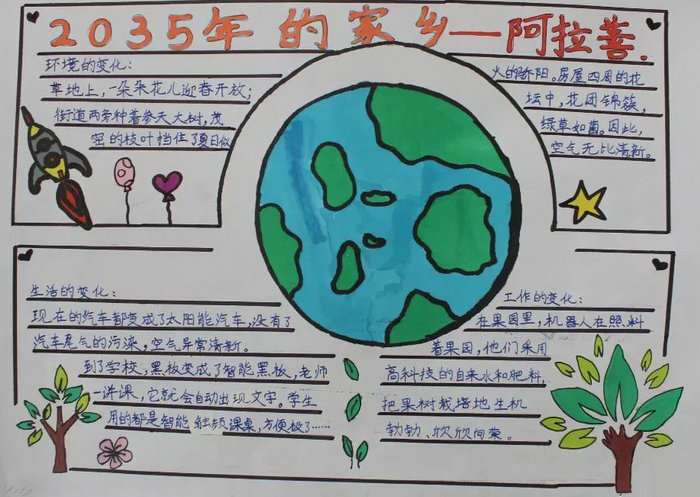 2035年的家乡——阿拉善.
环境的变化:
草地上,一朵朵花儿迎春开放;
街道两旁种着参天大树,茂
密的枝叶挡住了夏日似
火的骄阳。房屋四周的花
坛中,花团锦簇,
绿草如茵。因此,
空气无比清新。
生活的变化:
现在的汽车都变成了太阳能汽车,没有了
汽车尾气的污染,空气异常清新。
到了学校,黑板变成了智能黑板,老师
一讲课,它就会自动出现文字。学生
用的都是智能触频课桌,方便极了……
工作的变化:
在果园里,机器人在照料
着果园,他们采用
高科技的自来水和肥料,
把果树栽培地生机
勃勃、欣欣向荣。